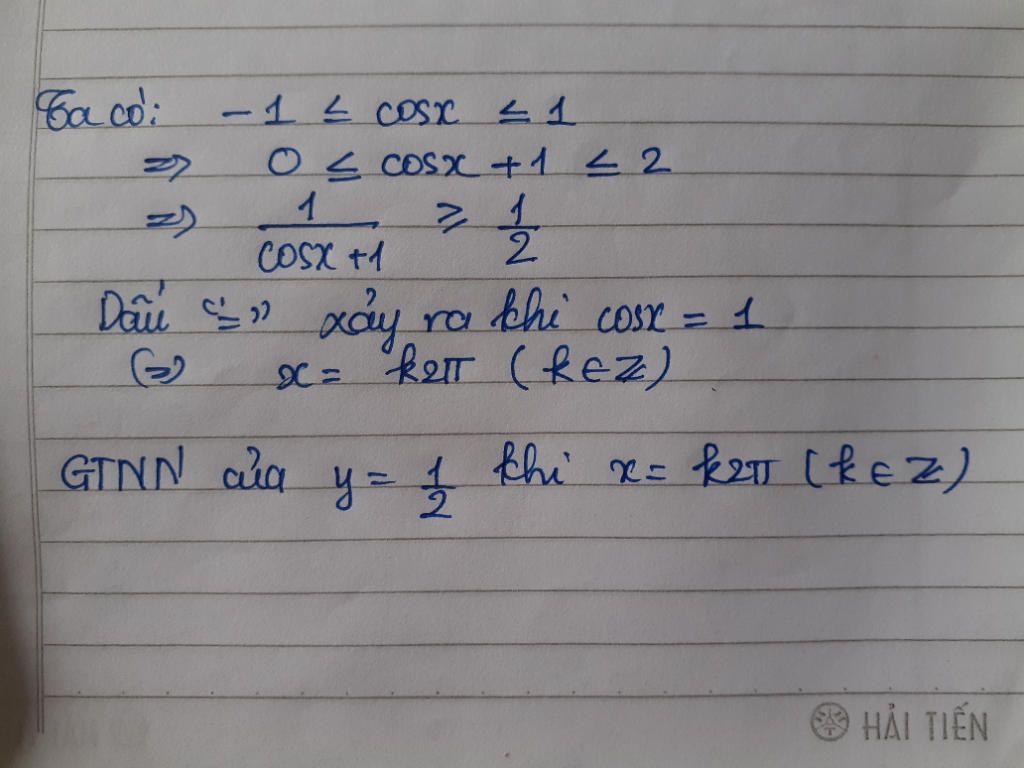 Ta có: -1 ≤ cosx ≤ 1
=> 0 ≤ cosx +1 ≤ 2
=> 1/(cosx +1) ≥ 1/2
Dấu "=" xảy ra khi cosx = 1
(=) x = k2π (k∈Z)
GTNN của y = 1/2 khi x = k2π (k∈Z)
HẢI TIẾN